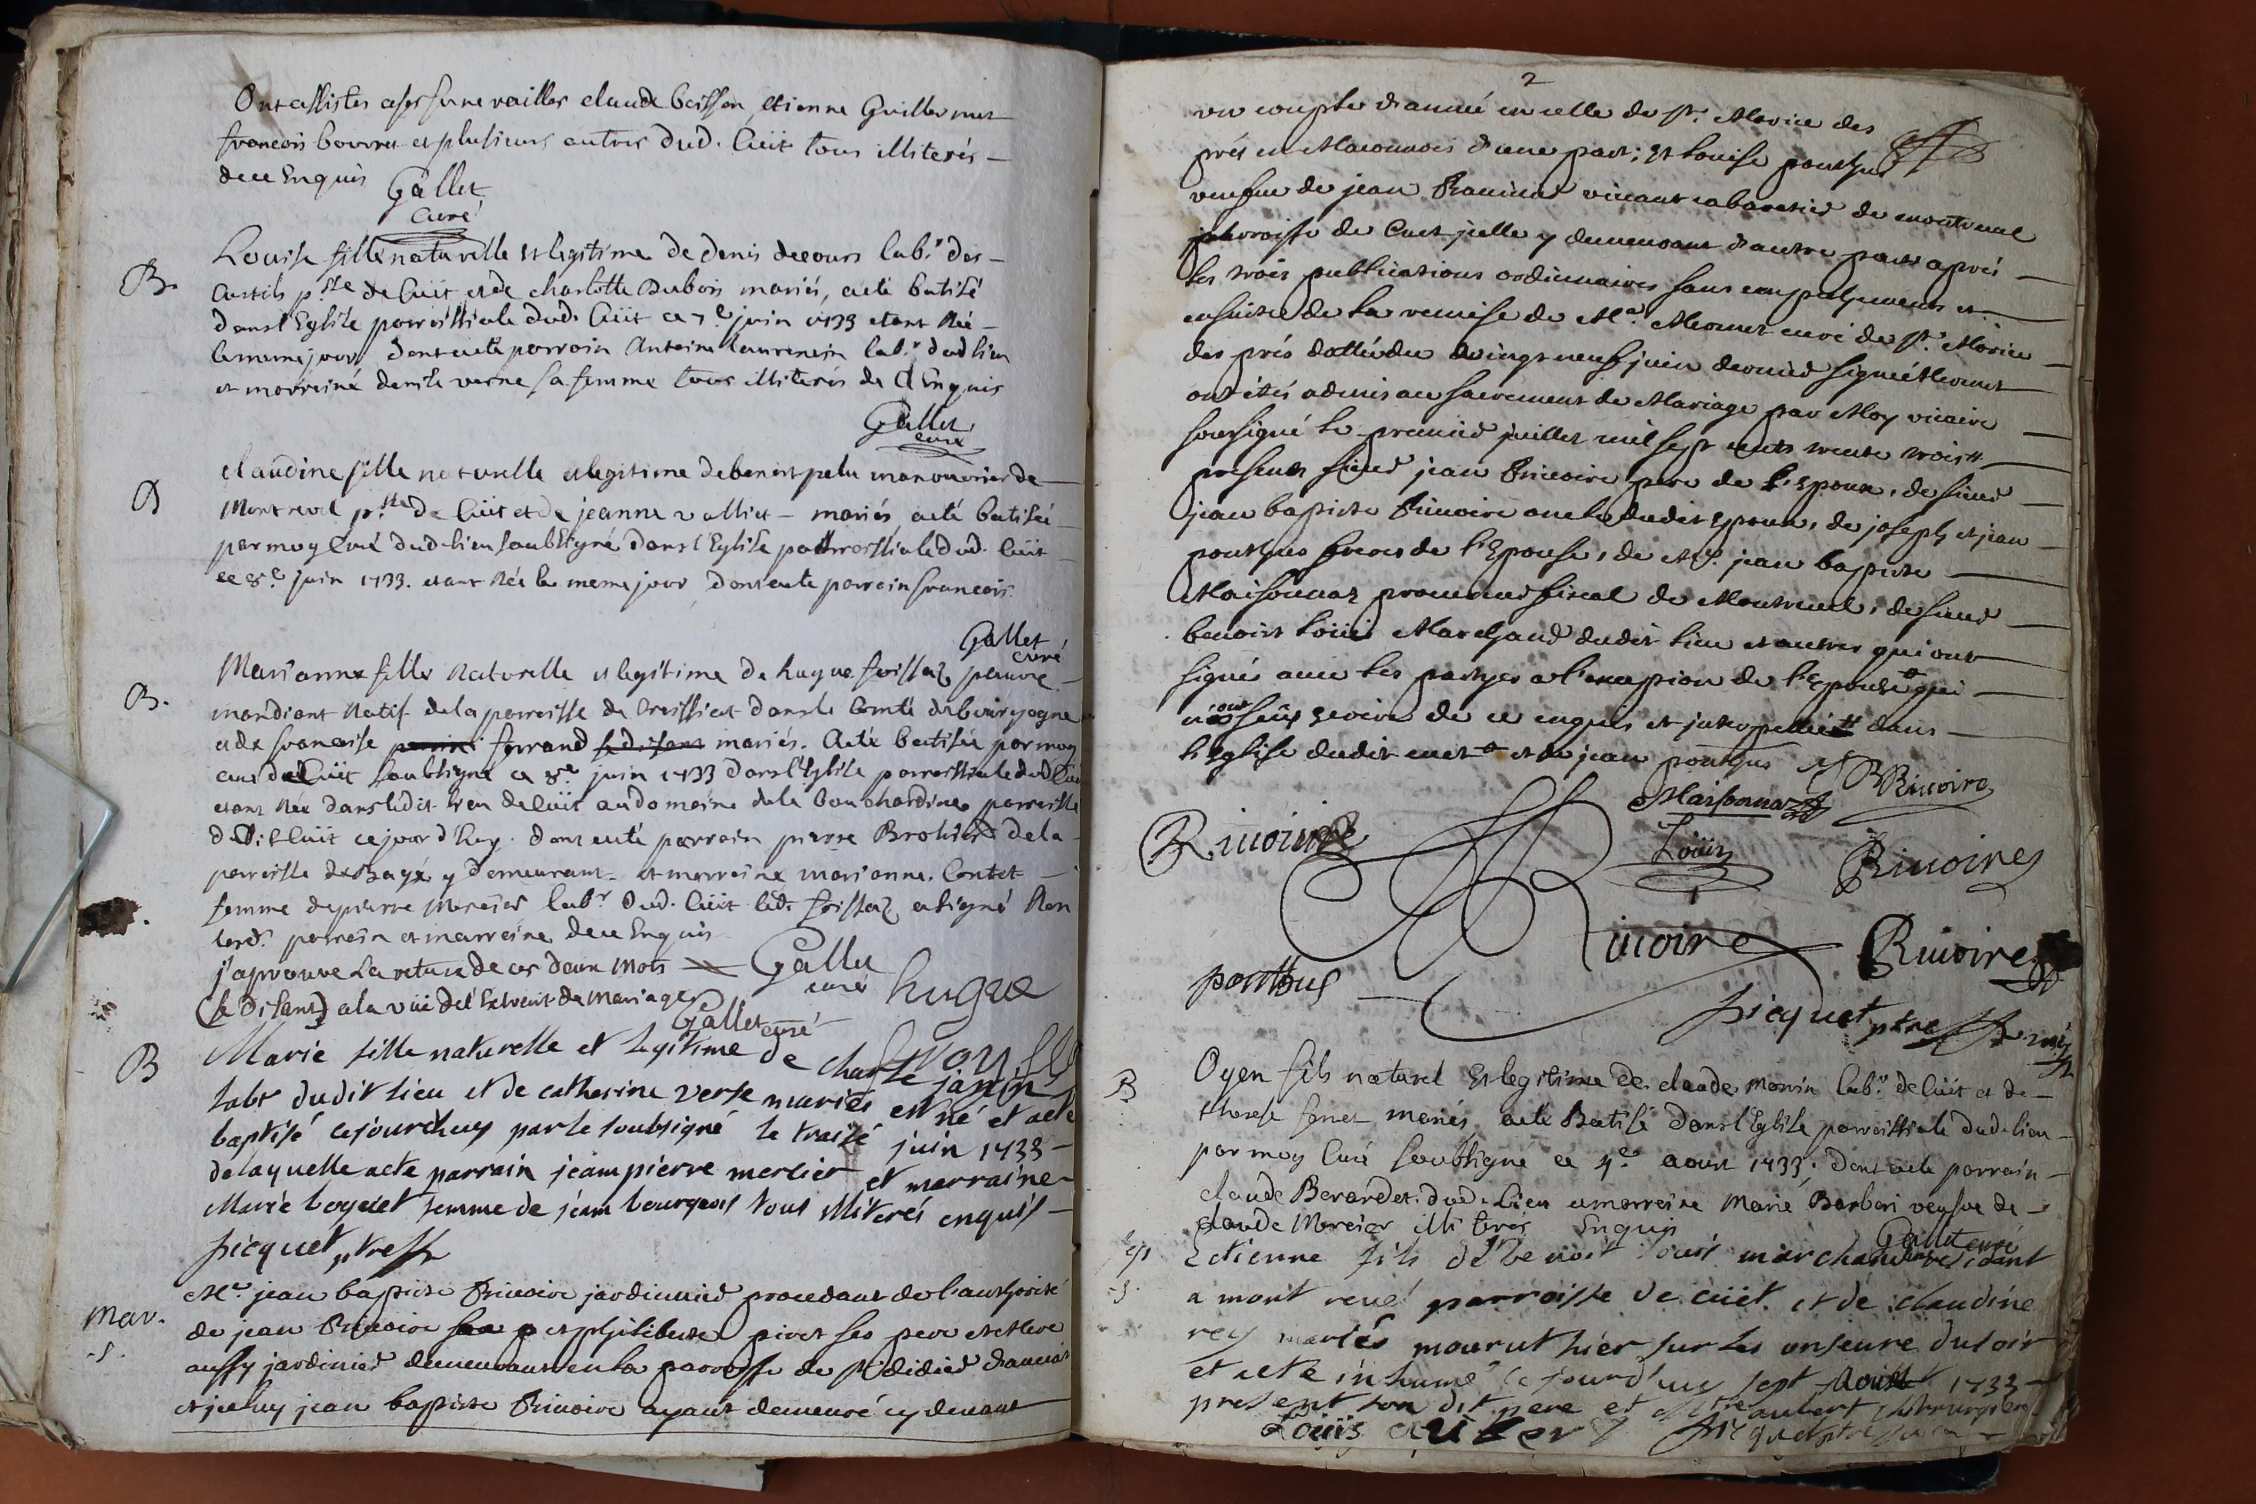 Ont assistes a ses funerailles claude boisson, etienne Guillermet
francois bouvret et plusieurs autres dud. Cüit tous illiterés
de ce Enquis Gallet
curé
B.
Louise fille naturelle et legitime de denis decours lab.r des
Curtils p.sse de Cüit et de charlotte Dubois mariés, a eté batisé
dans l'Eglise parroissiale dud. Cüit ce 7.e juin 1733 etant Née
le meme jour, dont a eté parrain Antoine laurencin lab.r dud lieu
et marreine denise verne sa femme tous illiterés de ce Enquis
Gallet
curé
B
claudine fille naturelle et legitime de benoit pelu manouvrier de
Montrevel p.sse de Cüit et de jeanne valliet mariés, a eté batisée
par moy Curé dud lieu soubsigné dans l'Eglise parroissiale dud. Cüit
ce 8.e juin 1733. etant Née le meme jour, dont a eté parrain francois
Gallet
curé
B.
Marianne fille Naturelle et legitime de hugue foissaz pauvre
mandiant Natif de la parroisse de Croissiat dans le Comté de bourgogne
et de francoise ferrand se disant mariés. a eté batisée par moy
curé de Cüit soubsigné ce 8.e juin 1733 dans l'Eglise parroissiale dud Cüit
etant Née dans ledit lieu de Cüit au domaine de la bouchardiere parroisse
dudit Cüit ce jour d'huy. dont a eté parrain pierre Brohier de la
parroisse de Bagé y demeurant et marreine marianne Contet
femme de pierre Mercier lab.r Dud. Cüit led. foissaz a signé Non
lesd. parrein et marreine de ce Enquis
j'aprouve La rature de ces deux Mots Gallet
curé hugue
(se disant) a la vüe de l'Extrait de Mariage
Gallet curé
B
Marie fille naturelle et legitime de charle janin
labr dudit lieu et de catherine verse mariés est né et a eté
baptisé cejourdhuy par le soubsigné le traizé juin 1733
de laquelle a eté parrain jeam pierre mercier et marraine
Marie boyuet femme de jéam bourgeois tous illiterés enquis
picquet ptre
Mar.
M.e jean baptiste Rivoire jardinnier procedant de l'authorité
de jean Rivoire et philiberte pivet ses pere et Mere
aussy jardinier demeurant en la parroisse de St didier
et jceluy jean baptiste Rivoire ayant demeuré cy devant
2
un couple d'année en celle de St. Morice des
prés en Maconnois d'une part; Et Louise ponthus
veufve de jean vivant cabaretier de montrevel
parroisse de Cuet jcelle y demeurant d'autre part après
les trois publications ordinaires sans empeschement et
ensuite de la remise de M.e curé de St. Morice
des prés dattée du vingt neuf juin dernier signée
ont étés admis au sacrement de Mariage par Moy vicaire
soussigné le premier juillet mil sept cents trente trois
presents sieur jean Rivoire pere de l'Epoux, de sieur
jean baptiste Rivoire oncle dudit Epoux, de joseph et jean
ponthus freres de l'Epouse, de M.e jean baptiste
Maisonnaz procureur fiscal de Montrevel, de sieur
benoist Loüis Marchand dudit lieu et autres qui ont
signés avec les parties a l'exception de l'Epouse qui
n'a sceu Ecrire de ce enquis et jnterpellée dans
l'Eglise dudit cuet et de jean ponthus
Rivoire
Maisonnaz
Rivoire
Loüis
Rivoire
Rivoire
Rivoire
ponthus
picquet ptre
B
Oyen fils naturel et legitime de claude Morin lab.r de Cüit et de
therese ferret mariés a eté Batisé dans l'Eglise parroissiale dud. lieu
par moy Curé soubsigné ce 4.e aoust 1733; dont a eté parrain
claude Berardet dud. Lieu et marreine Marie Barberi veufve de
claude Mercier illiterés Enquis
Gallet curé
Etienne fils de Sr benoit louis marchand residant
a mont revel parroisse de cüet et de claudine
rey mariés mourut hier sur les onseure du soir
et a eté inhumé ce jourdhuy sept Aoust 1733
present son dit pere et aubert chirurgien
Loüis auber